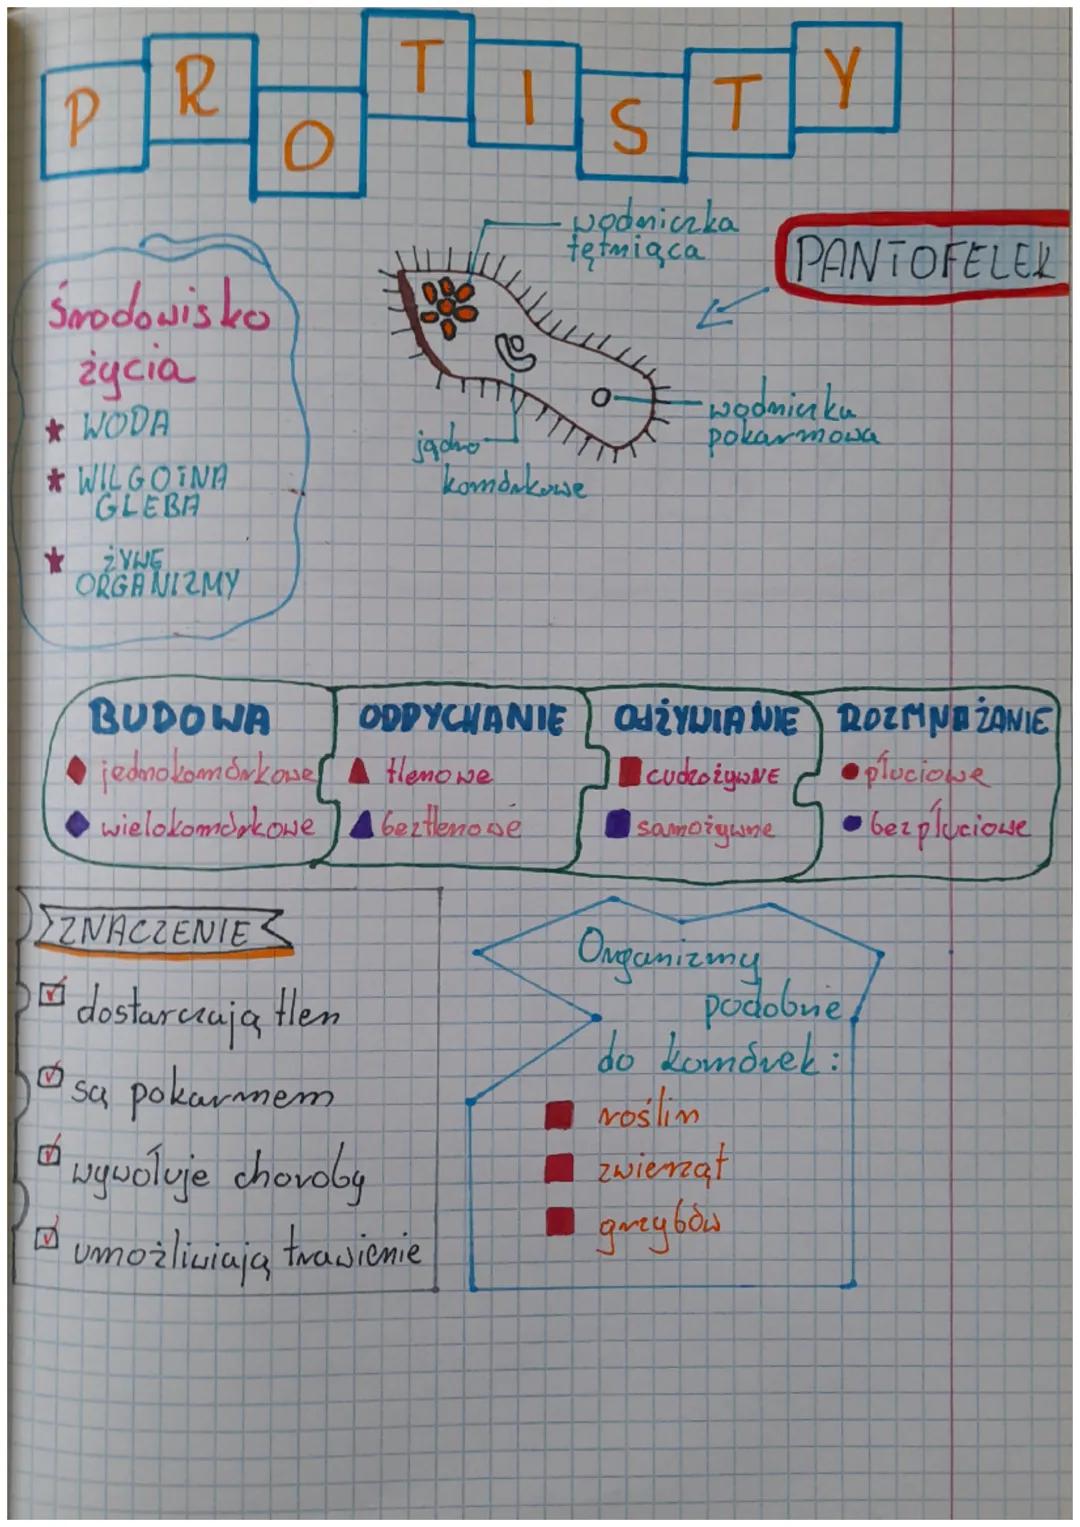 PROTISTY
wodniczka
tętniąca
PANTOFELEK
Środowisko
życia
WODA
WILGOTNA
GLEBA
ŻYWE
ORGANIZMY
wodniczka
pokarmowa
jądro
komórkowe
BUDOWA
jednokomórkowe
wielokomórkowe
ODDYCHANIE
tlenowe
beztlenowe
ODŻYWIANIE
cudzożywNE
samożywne
ROZMNAŻANIE
płuciowe
bezpłuciowe
ZNACZENIE
dostarczają tlen
są pokarmem
wywołuje choroby
umożliwiają trawienie
Organizmy
podobne
do komórek:
roślin
zwierząt
grzybów